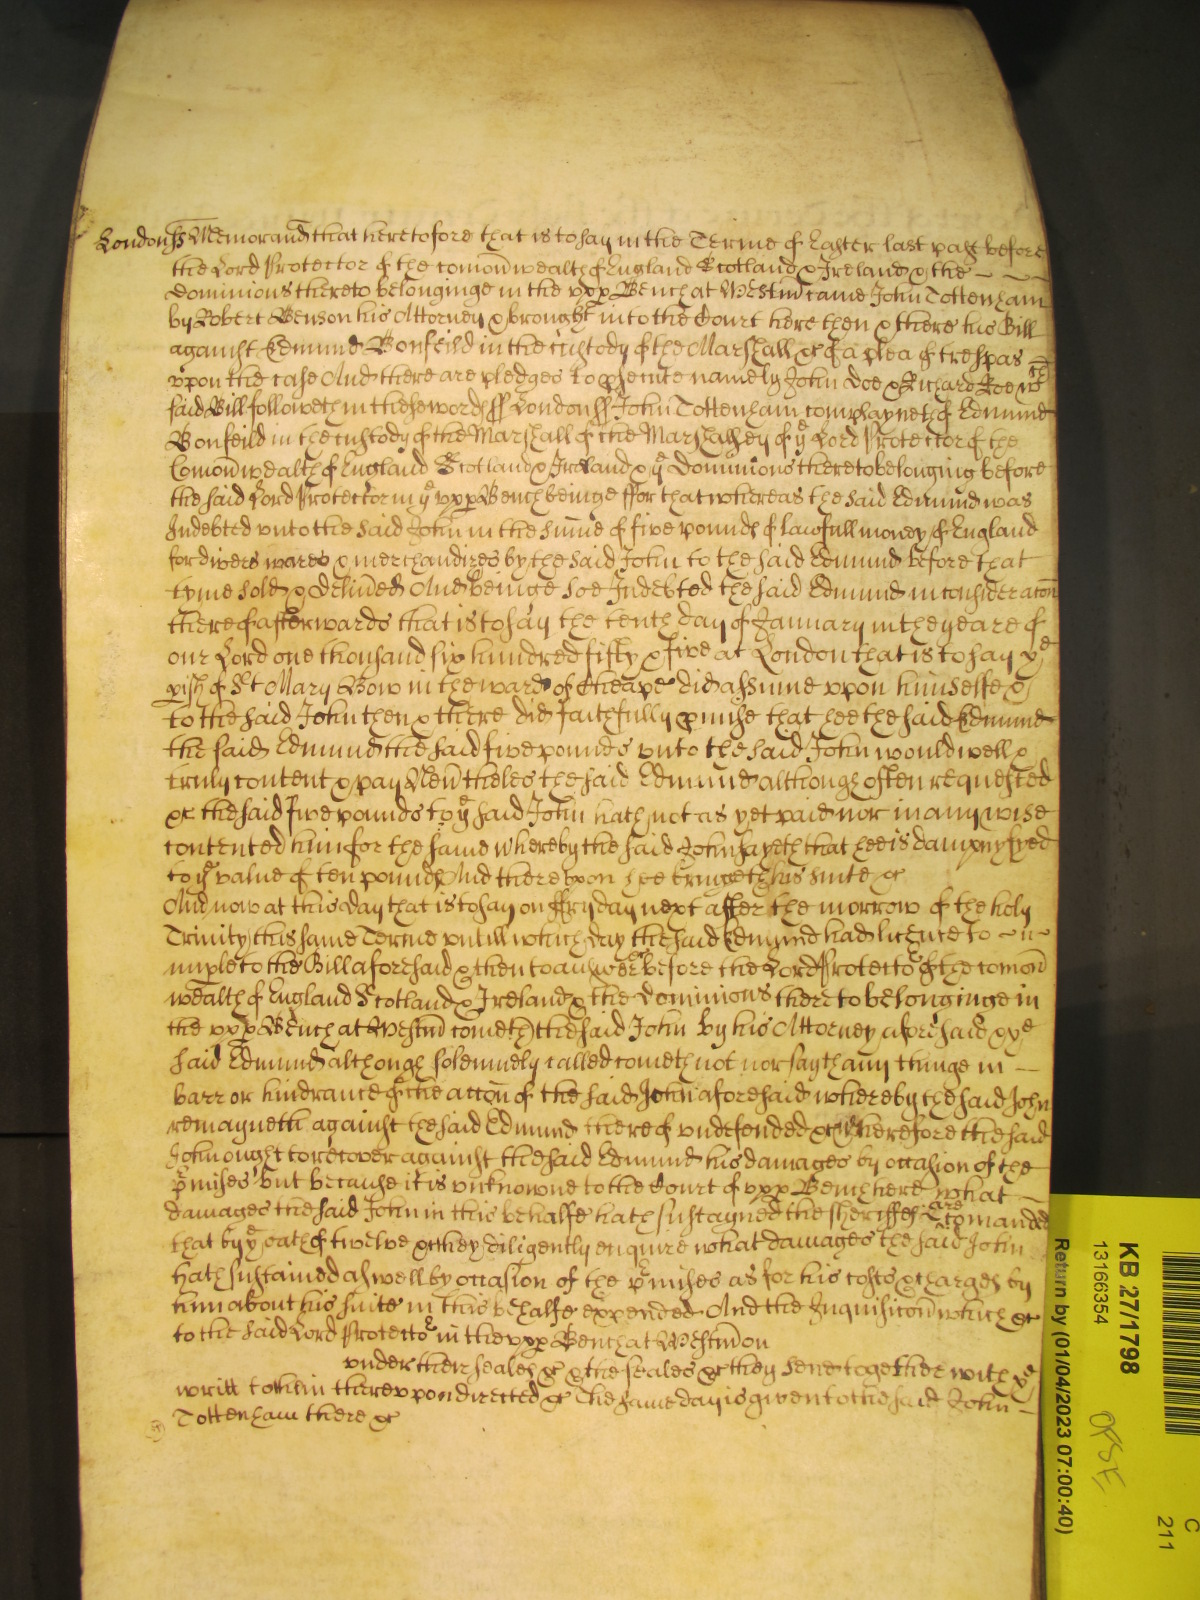 London ss Memorand that heretofore that is to say in the Terme of Easter last past before
the Lord Protector of the comonwealth of England Scotland & Ireland & the
dominions thereto belonginge in the vpp Bench at Westm came John Tottenham
by Robert Benson his Attorney & brought into the Court here then & there his Bill
against Edmund Bonfeild in the custody of the Marshall &c of a plea of trespas
vpon the case And there are pledges to psecute namely John Doe & Richard Roe wch
said Bill followeth in these words ss London ss John Tottenham complayneth of Edmund
Bonfeild in the custody of the Marshall of the Marshalsey of ye Lord Protector of the
Comonwealth of England Scotland & Ireland & ye Dominions thereto belonging before
the said Lord Protector in ye vpp Bench beinge ffor that whereas the said Edmund was
Indebted vnto the said John in the sume of five pounds of lawfull money of England
for divers wares & merchandizes by the said John to the said Edmund before that
tyme sold & delived And beinge soe Indebted the said Edmund in consideracon
thereof afterwards that is to say the tenth day of January in the yeare of
our Lord one thousand six hundred fifty & five at London that is to say in ye
pish of St Mary Bow in the ward of Cheape did assume vpon himselfe &
to the said John then & there did faithfully pmise that hee the said Edmund
the said Edmund the said five pounds vnto the said John would well &
truly content & pay Nevtheles the said Edmund although often requested
&c the said five pounds to ye said John hath not as yet paid nor in any wise
contented him for the same whereby the said John sayeth that hee is dampnyfyed
to ye value of ten pounds And there vpon hee bringeth his suite &c
And now at this day that is to say on ffryday next after the morrow of the holy
Trinity this same Terme vntill which day the said Edmund had licence to
imple to the Bill aforesaid & then to answere before the Lord Protector of the comon
wealth of England Scotland & Ireland & the Dominions thereto belonginge in
the vpp Bench at Westm cometh the said John by his Attorney aforesaid & ye
said Edmund although solemnely called cometh not nor sayth any thinge in
barr or hindrance of the accon of the said John aforesaid whereby the said John
remayneth against the said Edmund thereof vndefended &c Wherefore the said
John ought to recover against the said Edmund his damages by occasion of the
pmises but because it is vnknowne to the Court of vpp Bench here what
damages the said John in this behalfe hath sustayned the sheriffes are comanded
that by ye oath of twelve &c they diligently enquire what damages the said John
hath sustained aswell by occasion of the pmises as for his costs & charges by
him about his suite in this behalfe expended And the Inquisicon which &c
to the said Lord Protector in the vpp Bench at Westm on
vnder their seales &c & the seales &c they send together with ye
writt to them therevpon directed &c The same day is given to the said John
Tottenham there &c
KB 27/1798
13166354
Return by (01/04/2023 07:00:40)
C
211